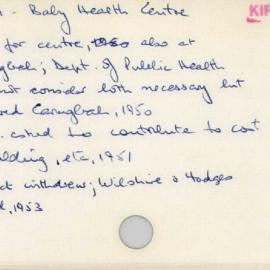 - Baby Health Centre
KIR
for centre, 1950 also at
; Dept. of Public Health
not consider both necessary but
Caringbah, 1950
asked to contribute to cost
ilding, etc, 1951
withdrew; Wilshire & Hodges
, 1953